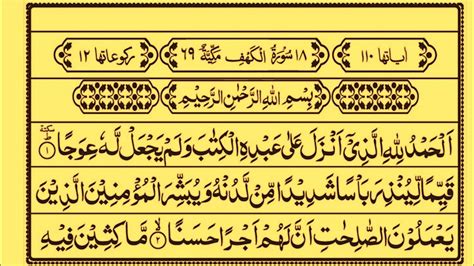 اٰیاتها ۱۱۰ ۱۸ سُوْرَةُ الْكَهْفِ مَكِّیَّةٌ ۶۹ رکوعاتها ۱۲
بِسْمِ اللّٰهِ الرَّحْمٰنِ الرَّحِیْمِ
اَلْحَمْدُ لِلّٰهِ الَّذِیْۤ اَنْزَلَ عَلٰی عَبْدِهِ الْكِتٰبَ وَ لَمْ یَجْعَلْ لَّهٗ عِوَجًا ؕ سكتة ۱
قَیِّمًا لِّیُنْذِرَ بَاْسًا شَدِیْدًا مِّنْ لَّدُنْهُ وَ یُبَشِّرَ الْمُؤْمِنِیْنَ الَّذِیْنَ
یَعْمَلُوْنَ الصّٰلِحٰتِ اَنَّ لَهُمْ اَجْرًا حَسَنًا ۙ ۲ مَّاكِثِیْنَ فِیْهِ